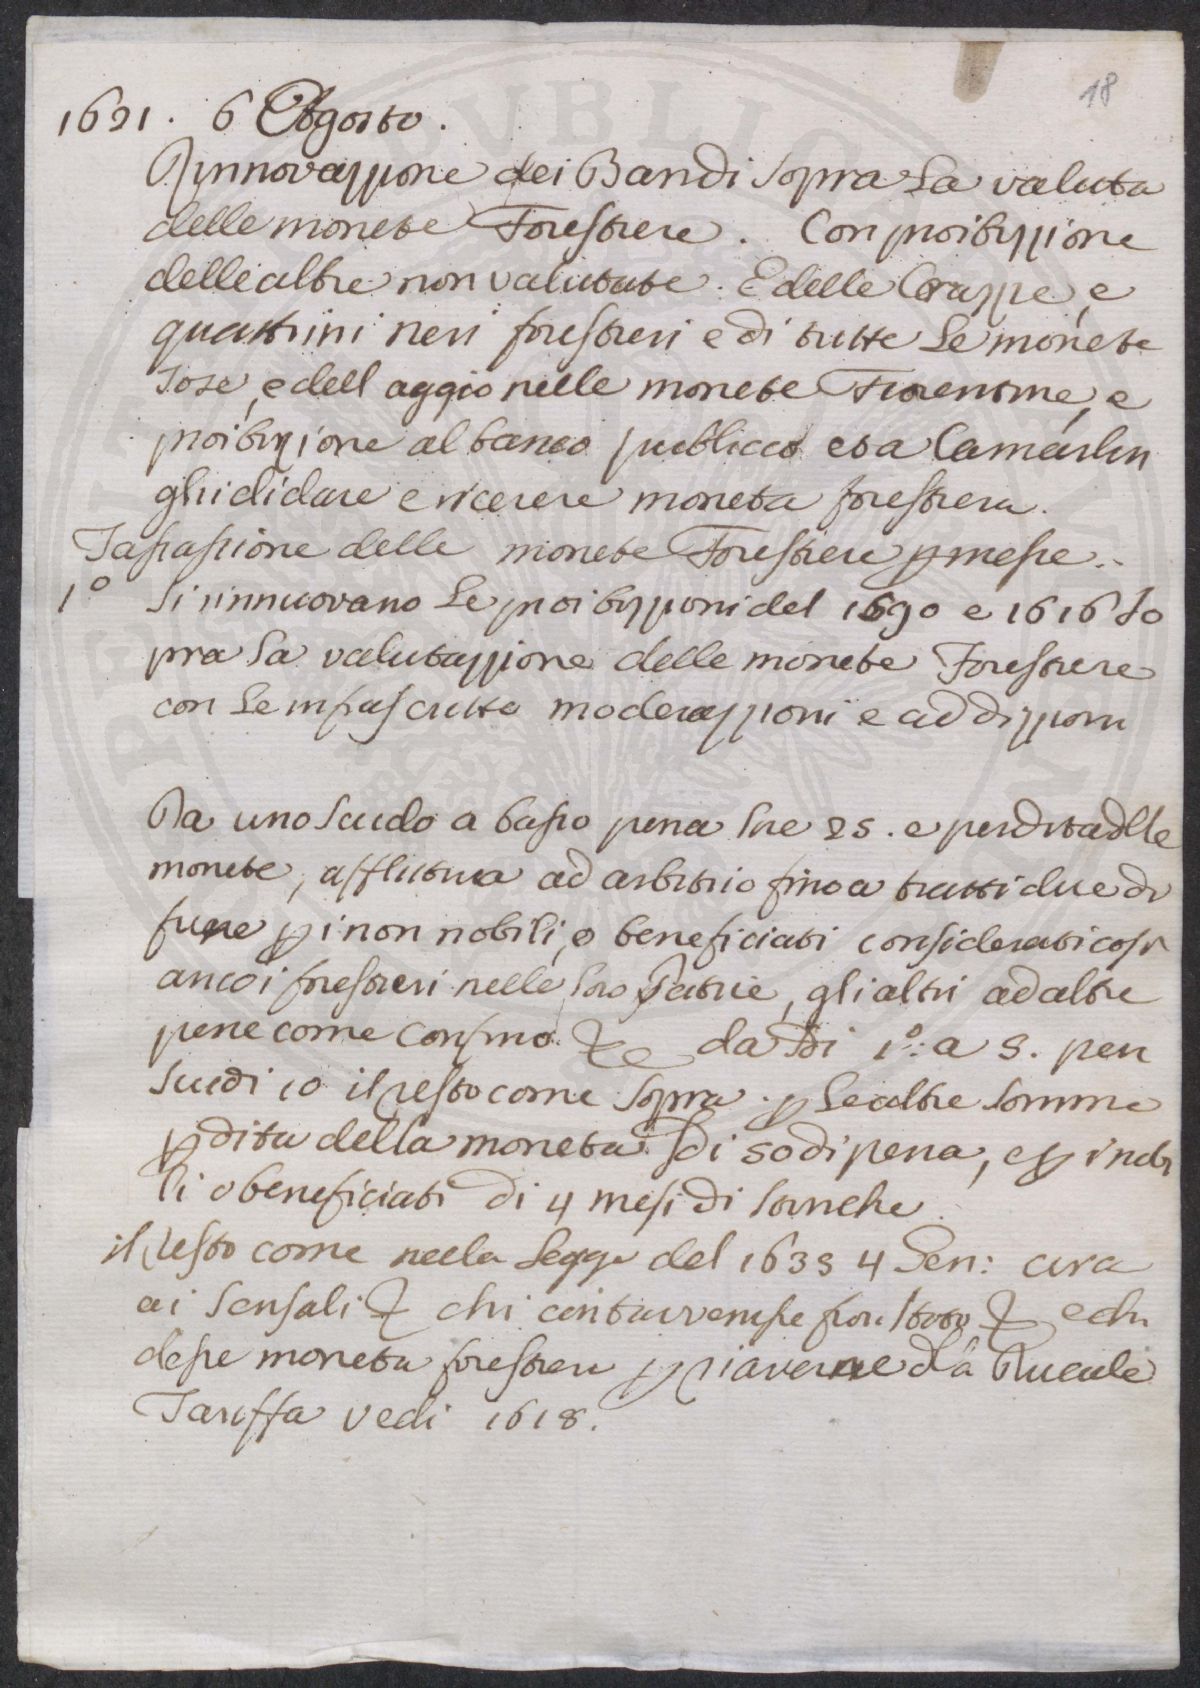 18
1621. 6 Agosto.
Rinnovazzione dei Bandi sopra la valuta
delle monete Forestiere. Con proibizzione
delle altre non valutate. E delle Crazze, e
quattrini neri forestieri e di tutte le monete
tose, e dell aggio nelle monete Fiorentine, e
proibizione al banco pubblico et a Camarlin
ghi di dare e ricevere moneta forestiera.
Tassassione delle monete Forestiere permesse.
1º Si rinnuovano le proibizzioni del 1590 e 1616 so
pra la valutazzione delle monete Forestiere
con le infrascritte moderazzioni e addizzioni
Da uno scudo a basso pena lire 25. e perdita delle
monete, afflittiva ad arbitrio fino a tratti due di
fune p i non nobili, o beneficiati considerati così
anco i forestieri nelle loro Patrie, gli altri ad altre
pene come confino &c da Di 1º: a 5. pen
scudi 10 il resto come sopra. p le altre somme
pdita della moneta Di 50 di pena, e p i nobi
li o beneficiati di 4 mesi di
il resto come nella Legge del 1633 4 Gen: circa
ai sensali & chi contravenisse & e chi
desse moneta forestiera p riaverne da Rucale
Tariffa vedi 1618.